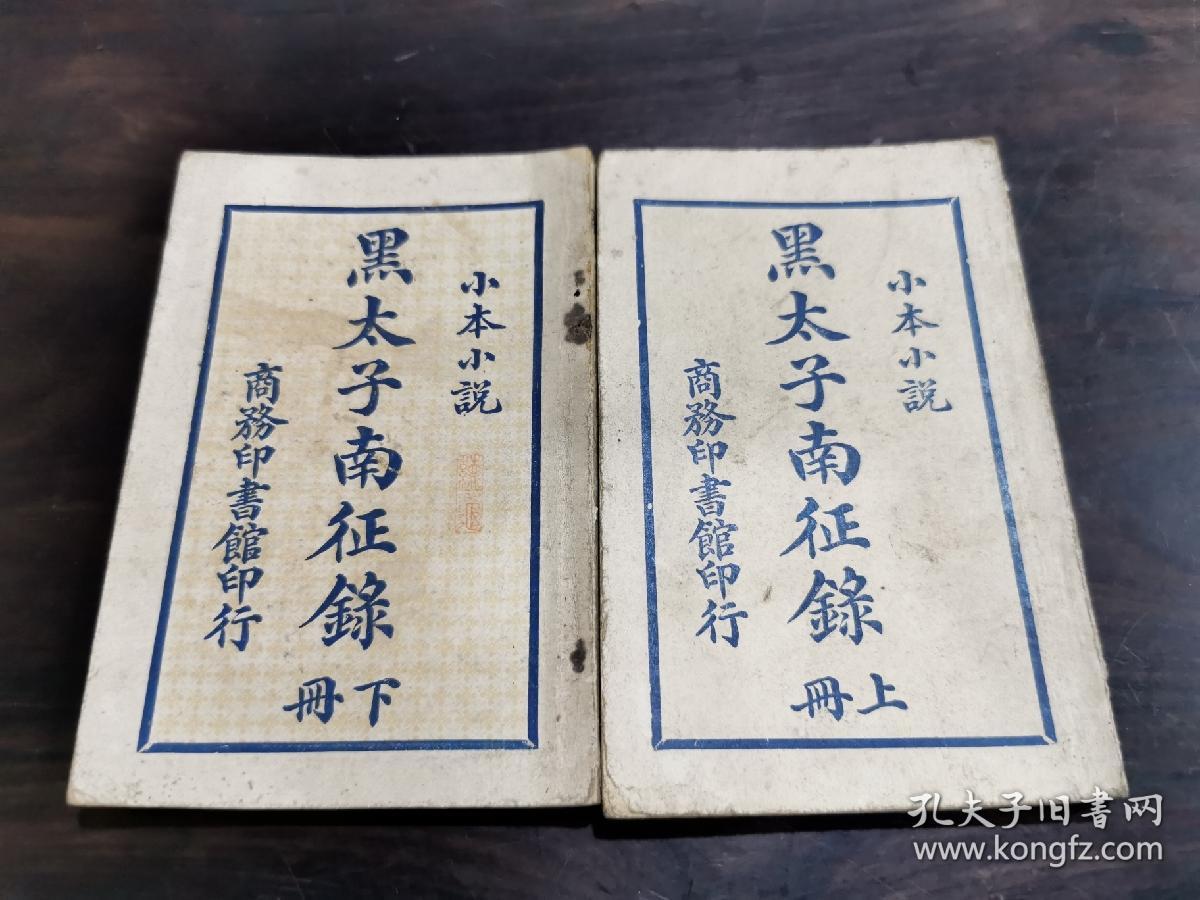 小本小説
黑太子南征錄
上冊
商務印書館印行
小本小説
黑太子南征錄
下冊
商務印書館印行
孔夫子旧书网
www.kongfz.com